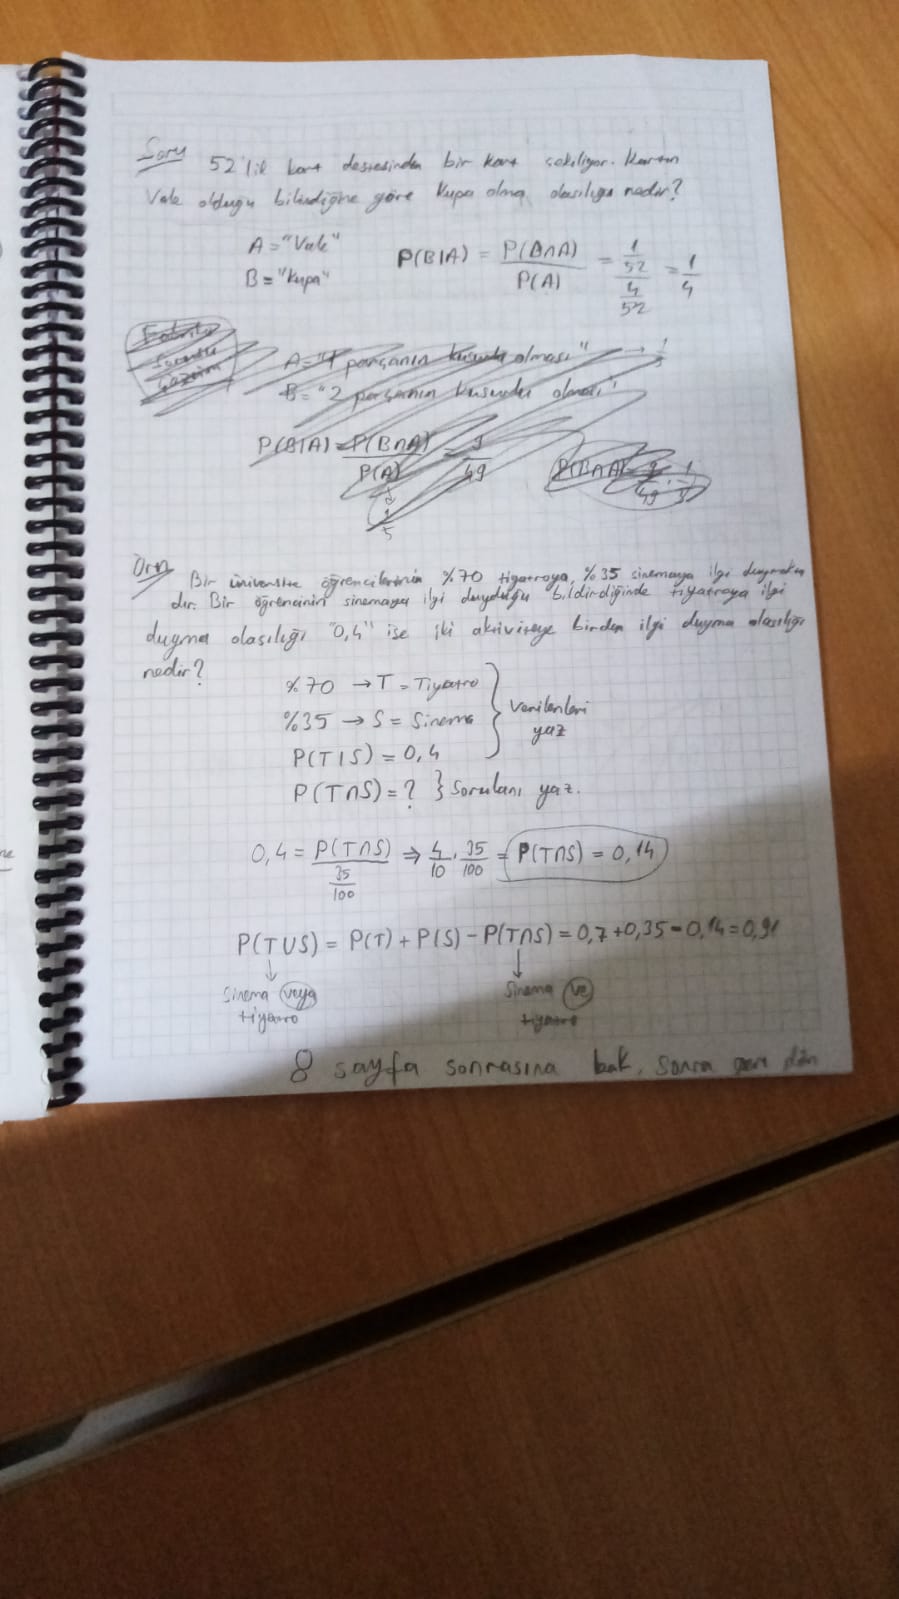 Soru 52'lik kart destesinden bir kart çekiliyor. Kartın
Vale olduğu bilindiğine göre Kupa olma olasılığı nedir?
A = "Vale"
B = "Kupa"
P(B|A) = P(B∩A) / P(A) = (1/52) / (4/52) = 1/4
A = "1 parçanın kusurlu olması" → 1/5
B = "2 parçanın kusurlu olması"
P(B|A) = P(B∩A) / P(A) = 9/49
1/5
P(B∩A)
Örn Bir üniversite öğrencilerinin %70 tiyatroya, %35 sinemaya ilgi duymakta
dır. Bir öğrencinin sinemaya ilgi duyduğu bildirdiğinde tiyatroya ilgi
duyma olasılığı "0,4" ise iki aktiviteye birden ilgi duyma olasılığı
nedir?
%70 → T = Tiyatro
%35 → S = Sinema
P(T|S) = 0,4
} Verilenleri
yaz
P(T∩S) = ? } Sorulanı yaz.
0,4 = P(T∩S) / (35/100) ⇒ 4/10 . 35/100 = P(T∩S) = 0,14
P(T∪S) = P(T) + P(S) - P(T∩S) = 0,7 + 0,35 - 0,14 = 0,91
↓ Sinema veya
tiyatro
↓ Sinema ve
tiyatro
8 sayfa sonrasına bak, sonra geri dön